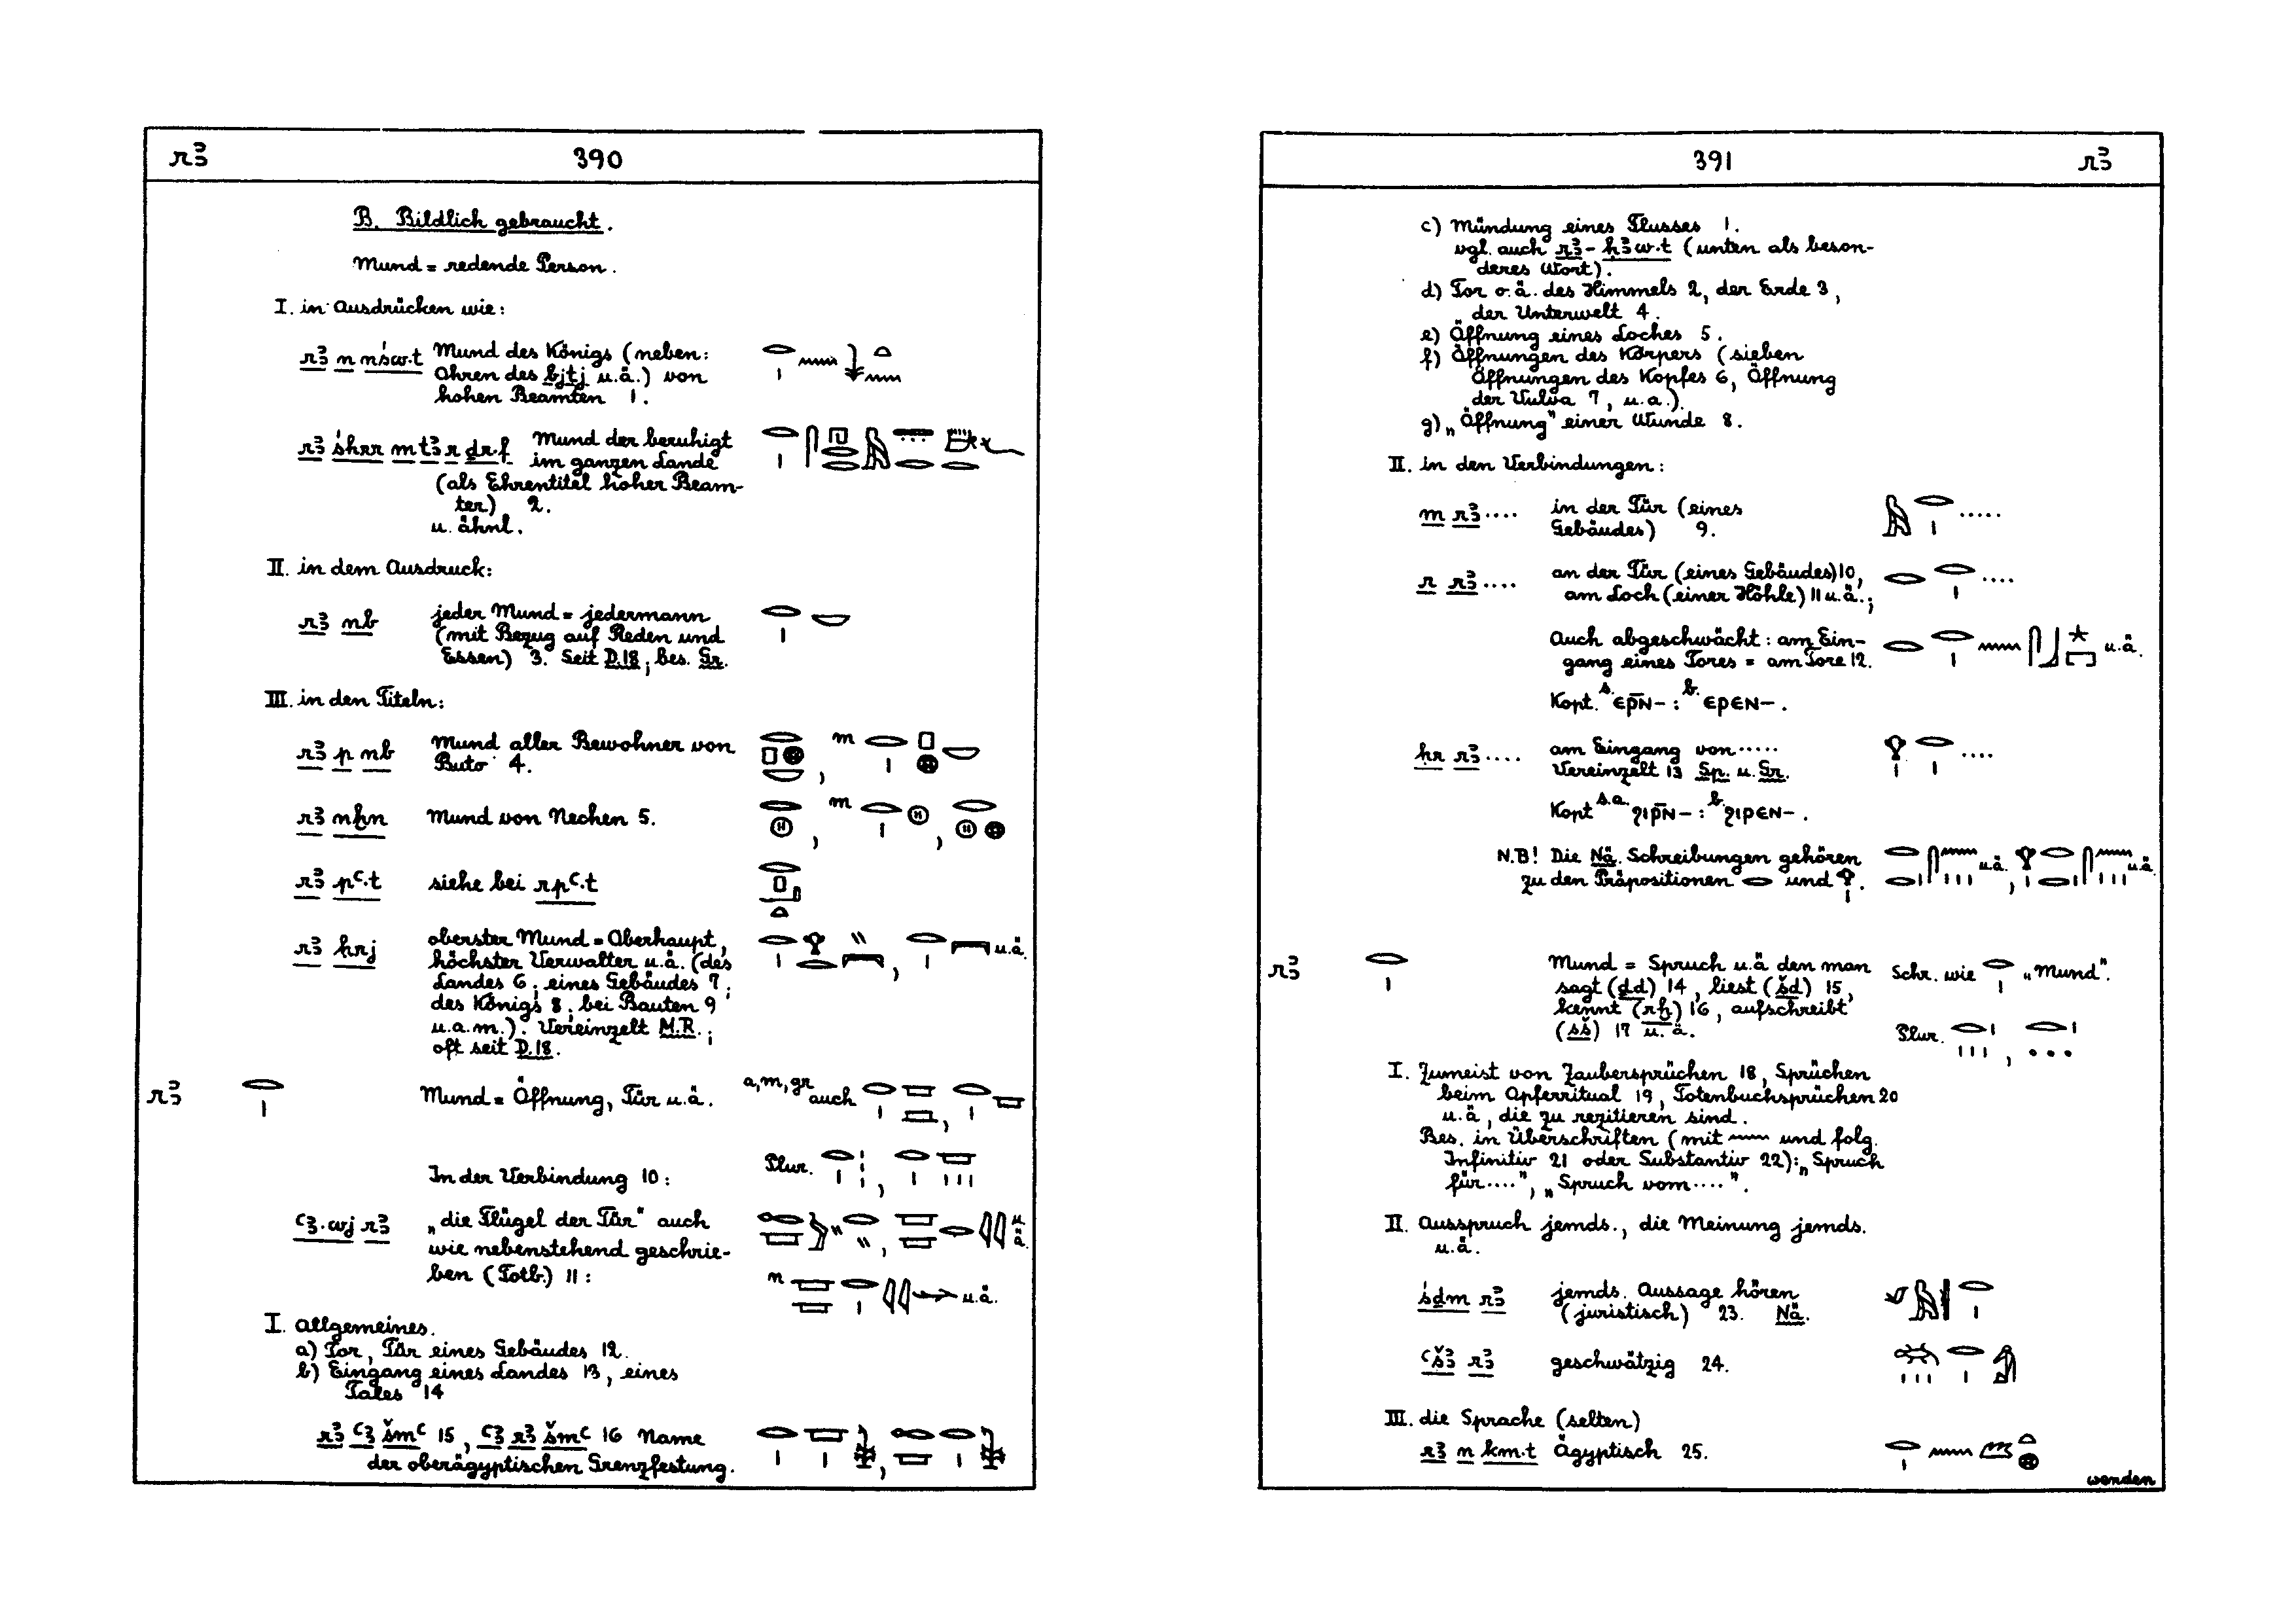 rꜣ 390
B. Bildlich gebraucht.
Mund = redende Person.
I. in Ausdrücken wie:
rꜣ n nśw.t Mund des Königs (neben:
Ohren des bjtj u.ä.) von
hohen Beamten 1.
rꜣ śhrr m tꜣ r ḏr.f Mund der beruhigt
im ganzen Lande
(als Ehrentitel hoher Beam-
ter) 2.
u. ähnl.
II. in dem Ausdruck:
rꜣ nb jeder Mund = jedermann
(mit Bezug auf Reden und
Essen) 3. Seit D.18; bes. Gr.
III. in den Titeln:
rꜣ p nb Mund aller Bewohner von
Buto 4.
rꜣ nḫn Mund von Nechen 5.
rꜣ pꜥ.t siehe bei rpꜥ.t
rꜣ ḥrj oberster Mund = Oberhaupt, u.ä.
höchster Verwalter u.ä. (des
Landes 6; eines Gebäudes 7;
des Königs 8; bei Bauten 9
u.a.m.). Vereinzelt M.R.;
oft seit D.18.
rꜣ Mund = Öffnung, Tür u.ä. a, m, gr auch
In der Verbindung 10: Plur.
ꜥꜣ.wj rꜣ „die Flügel der Tür" auch u.ä.
wie nebenstehend geschrie-
ben (Totb.) 11: n u.ä.
I. allgemeines.
a) Tor, Tür eines Gebäudes 12.
b) Eingang eines Landes 13, eines
Tales 14
rꜣ ꜥꜣ šmꜥ 15, ꜥꜣ rꜣ šmꜥ 16 Name
der oberägyptischen Grenzfestung.
391 rꜣ
c) Mündung eines Flusses 1.
vgl. auch rꜣ-ḥꜣw.t (unten als beson-
deres Wort).
d) Tor o.ä. des Himmels 2, der Erde 3,
der Unterwelt 4.
e) Öffnung eines Loches 5.
f) Öffnungen des Körpers (sieben
Öffnungen des Kopfes 6, Öffnung
der Vulva 7, u.a.).
g) „Öffnung" einer Wunde 8.
II. in den Verbindungen:
m rꜣ .... in der Tür (eines .....
Gebäudes) 9.
r rꜣ .... an der Tür (eines Gebäudes) 10, ....
am Loch (einer Höhle) 11 u.ä.;
Auch abgeschwächt: am Ein- u.ä.
gang eines Tores = am Tore 12.
Kopt. s. ⲉⲣ̅ⲛ- : b. ⲉⲣⲉⲛ-.
ḥr rꜣ .... am Eingang von ..... ....
Vereinzelt 13 Sp. u. Gr.
Kopt s.a. ϩⲓⲣ̅ⲛ- : b. ϩⲓⲣⲉⲛ-.
N.B! Die Nä. Schreibungen gehören u.ä. , u.ä.
zu den Präpositionen und .
rꜣ Mund = Spruch u.ä. den man Schr. wie „Mund".
sagt (ḏd) 14, liest (šd) 15,
kennt (rḫ) 16, aufschreibt
(sš) 17 u. ä. Plur.
I. Zumeist von Zaubersprüchen 18, Sprüchen
beim Opferritual 19, Totenbuchsprüchen 20
u.ä, die zu rezitieren sind.
Bes. in Überschriften (mit und folg.
Infinitiv 21 oder Substantiv 22): „Spruch
für ....", „Spruch vom ....".
II. Ausspruch jemds., die Meinung jemds.
u.ä.
śḏm rꜣ jemds. Aussage hören
(juristisch) 23. Nä.
ꜥšꜣ rꜣ geschwätzig 24.
III. die Sprache (selten)
rꜣ n km.t Ägyptisch 25.
wenden